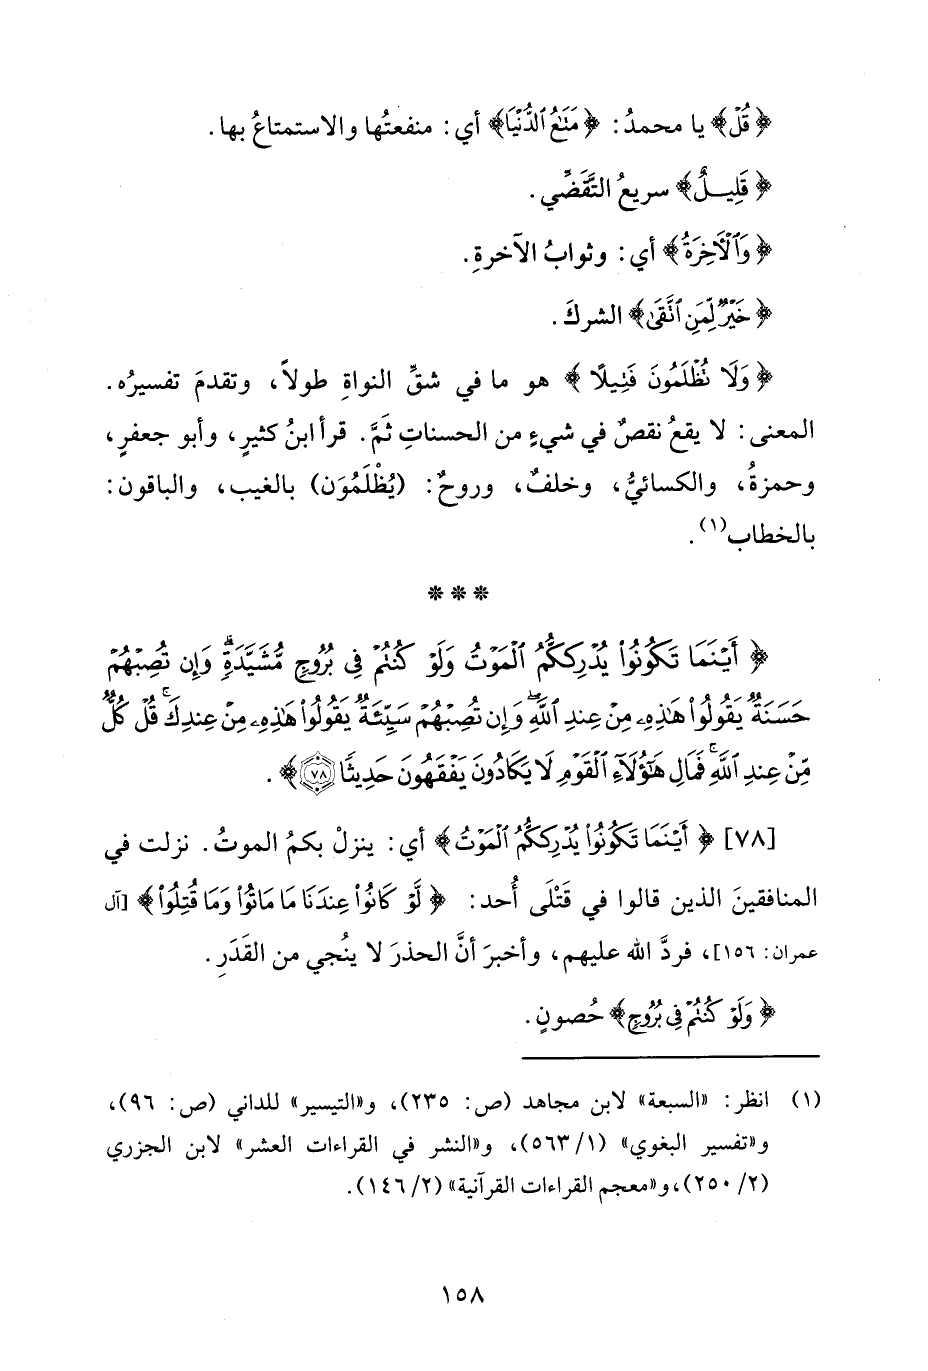 ﴿ قُلْ﴾ يا محمدُ: ﴿ مَتَٰعُ ٱلدُّنْيَا﴾ أي: منفعتُها والاستمتاعُ بها.
﴿ قَلِيلٌ﴾ سريعُ التَّقَضِّي.
﴿ وَٱلْأٓخِرَةُ﴾ أي: وثوابُ الآخرةِ.
﴿ خَيْرٌ لِّمَنِ ٱتَّقَىٰ﴾ الشركَ.
﴿ وَلَا تُظْلَمُونَ فَتِيلًا ﴾ هو ما في شقِّ النواةِ طولاً، وتقدمَ تفسيرُه.
المعنى: لا يقعُ نقصٌ في شيءٍ من الحسناتِ ثَمَّ. قرأ ابنُ كثيرٍ، وأبو جعفرٍ،
وحمزةُ، والكسائيُّ، وخلفٌ، وروحٌ: (يُظْلَمُوَن) بالغيب، والباقون:
بالخطاب(١).
***
﴿ أَيْنَمَا تَكُونُوا۟ يُدْرِككُّمُ ٱلْمَوْتُ وَلَوْ كُنتُمْ فِى بُرُوجٍ مُّشَيَّدَةٍ ۗ وَإِن تُصِبْهُمْ
حَسَنَةٌ يَقُولُوا۟ هَٰذِهِۦ مِنْ عِندِ ٱللَّهِ ۖ وَإِن تُصِبْهُمْ سَيِّئَةٌ يَقُولُوا۟ هَٰذِهِۦ مِنْ عِندِكَ ۚ قُلْ كُلٌّ
مِّنْ عِندِ ٱللَّهِ ۚ فَمَالِ هَٰٓؤُلَآءِ ٱلْقَوْمِ لَا يَكَادُونَ يَفْقَهُونَ حَدِيثًا ٧٨﴾.
[٧٨] ﴿ أَيْنَمَا تَكُونُوا۟ يُدْرِككُّمُ ٱلْمَوْتُ﴾ أي: ينزلْ بكمُ الموتُ. نزلت في
المنافقينَ الذين قالوا في قَتْلَى أُحد: ﴿ لَّوْ كَانُوا۟ عِندَنَا مَا مَاتُوا۟ وَمَا قُتِلُوا۟﴾ [آل
عمران: ١٥٦]، فردَّ الله عليهم، وأخبرَ أنَّ الحذرَ لا ينُجي من القَدَرِ.
﴿ وَلَوْ كُنتُمْ فِى بُرُوجٍ﴾ حُصونٍ.
(١) انظر: «السبعة» لابن مجاهد (ص: ٢٣٥)، و«التيسير» للداني (ص: ٩٦)،
و«تفسير البغوي» (١/ ٥٦٣)، و«النشر في القراءات العشر» لابن الجزري
(٢/ ٢٥٠)، و«معجم القراءات القرآنية» (٢/ ١٤٦).
١٥٨